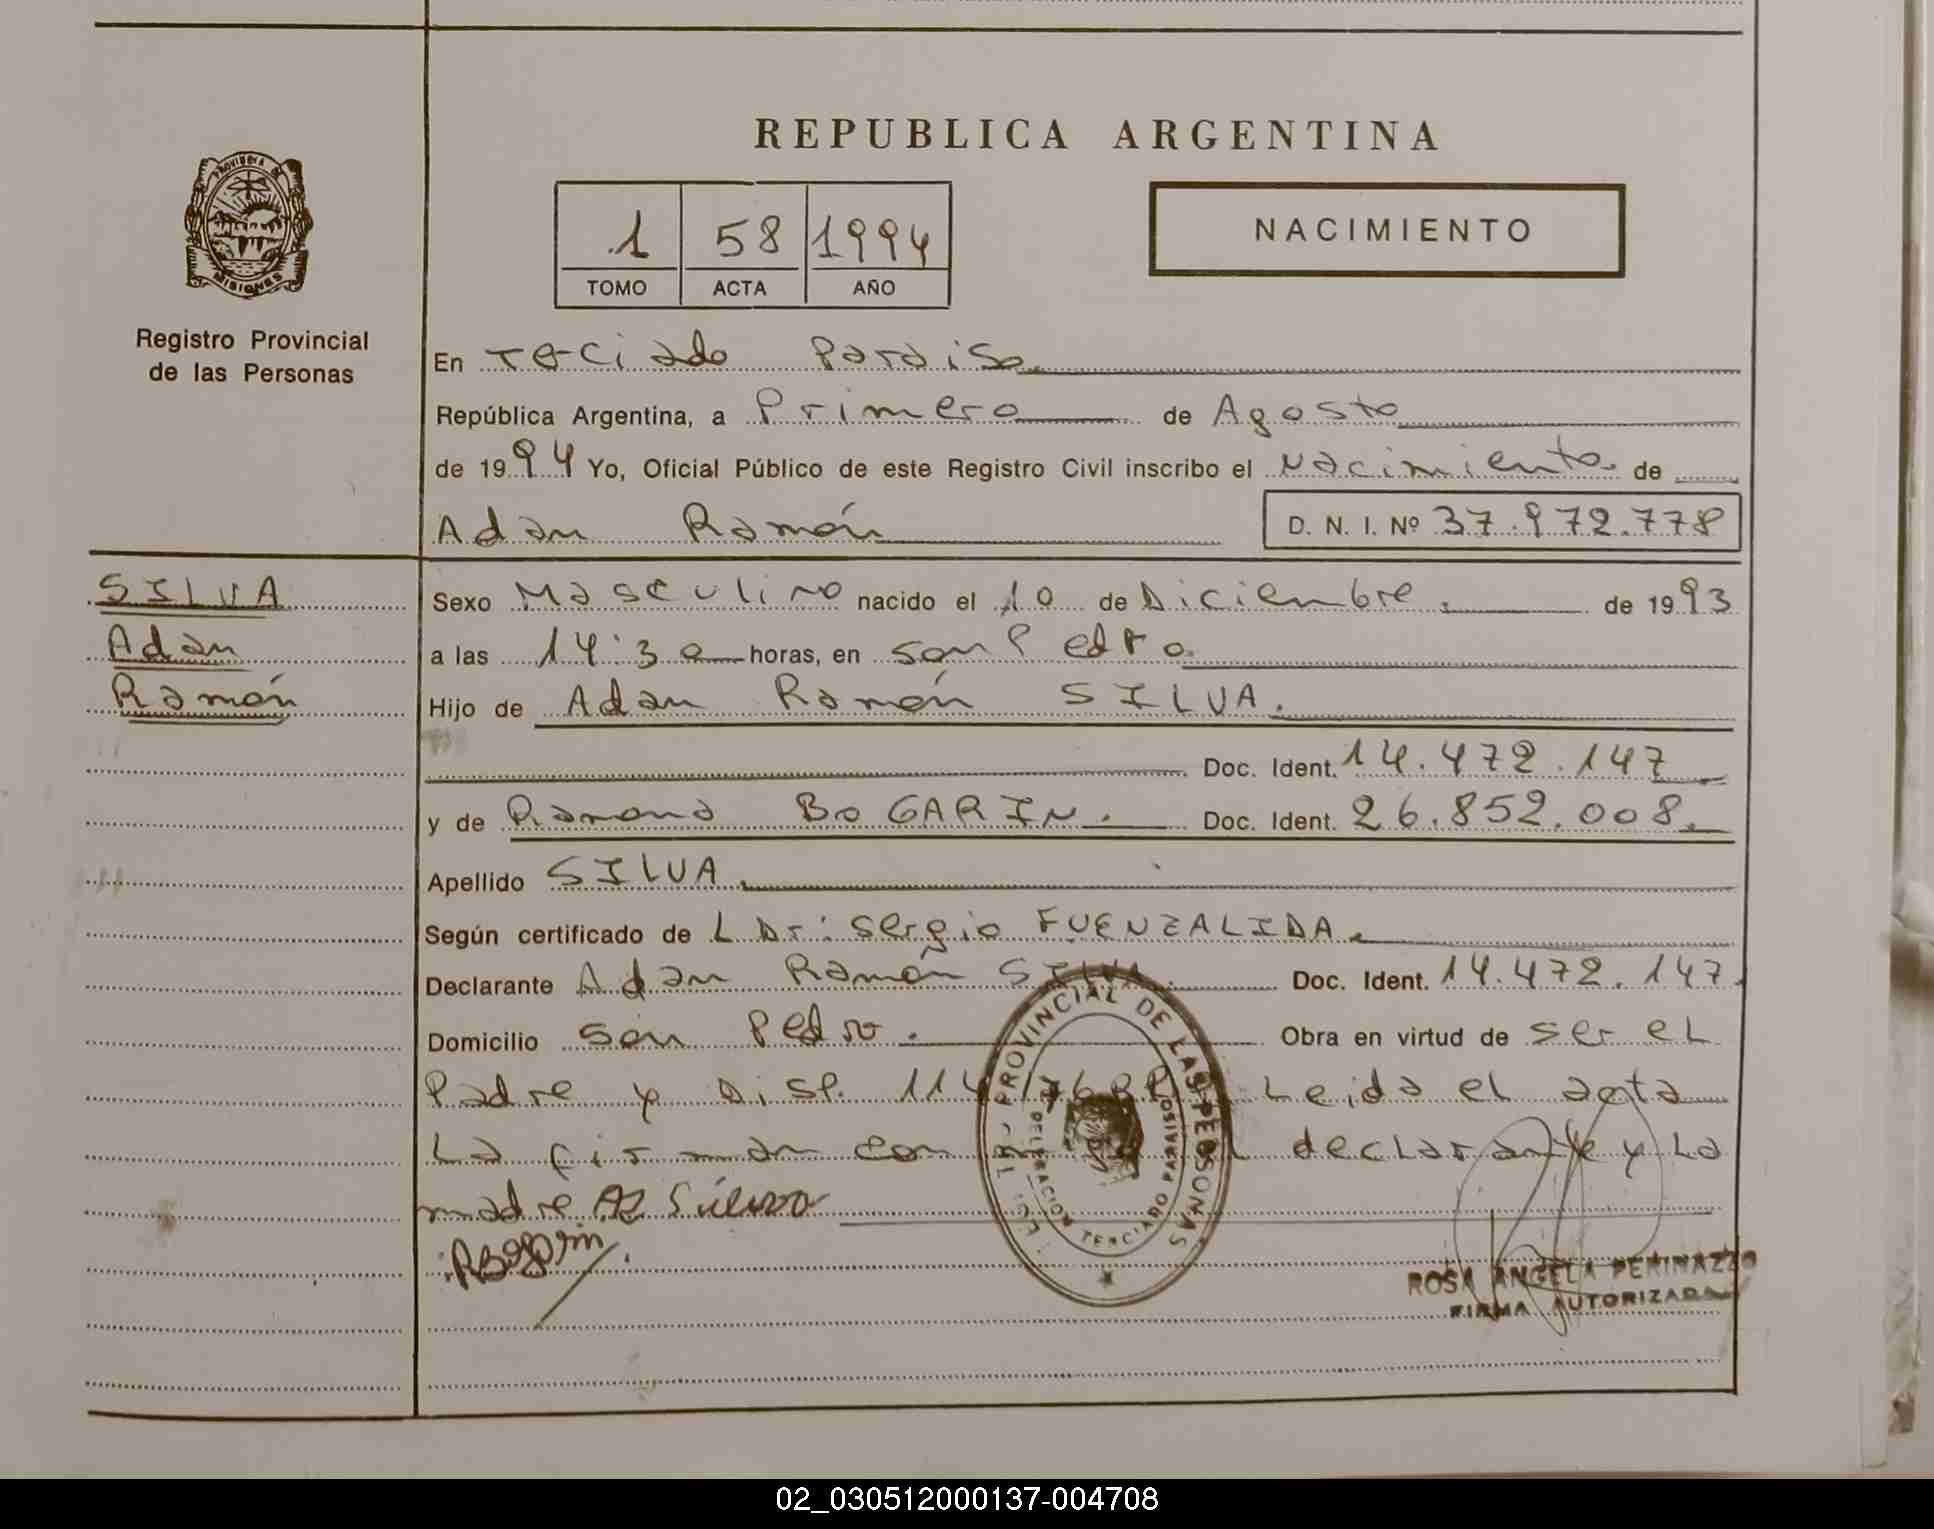 REPUBLICA ARGENTINA
PROVINCIA DE
MISIONES
Registro Provincial
de las Personas
1 58 1994
TOMO ACTA AÑO
NACIMIENTO
En Terciado Paraiso
República Argentina, a Primero de Agosto
de 1994 Yo, Oficial Público de este Registro Civil inscribo el Nacimiento de
Adan Ramón D. N. I. Nº 37.972.778
SILVA
Adan
Ramón
Sexo Masculino nacido el 10 de Diciembre. de 1993
a las 14:30 horas, en San Pedro.
Hijo de Adan Ramón SILVA.
Doc. Ident. 14.472.147
y de Ramona BOGARIN. Doc. Ident. 26.852.008.
Apellido SILVA.
Según certificado de L Dr: Sergio FUENZALIDA.
Declarante Adan Ramón SILVA. Doc. Ident. 14.472.147.
Domicilio San Pedro. Obra en virtud de ser el
Padre y Disp. Leida el acta
La firman con declarante y La
madre. AR Silva
RBogarin
PROVINCIAL DE LAS PERSONAS
DELEGACION TERCIADO PARAISO
ROSA ANGELA PERINAZZO
FIRMA AUTORIZADA
02_030512000137-004708